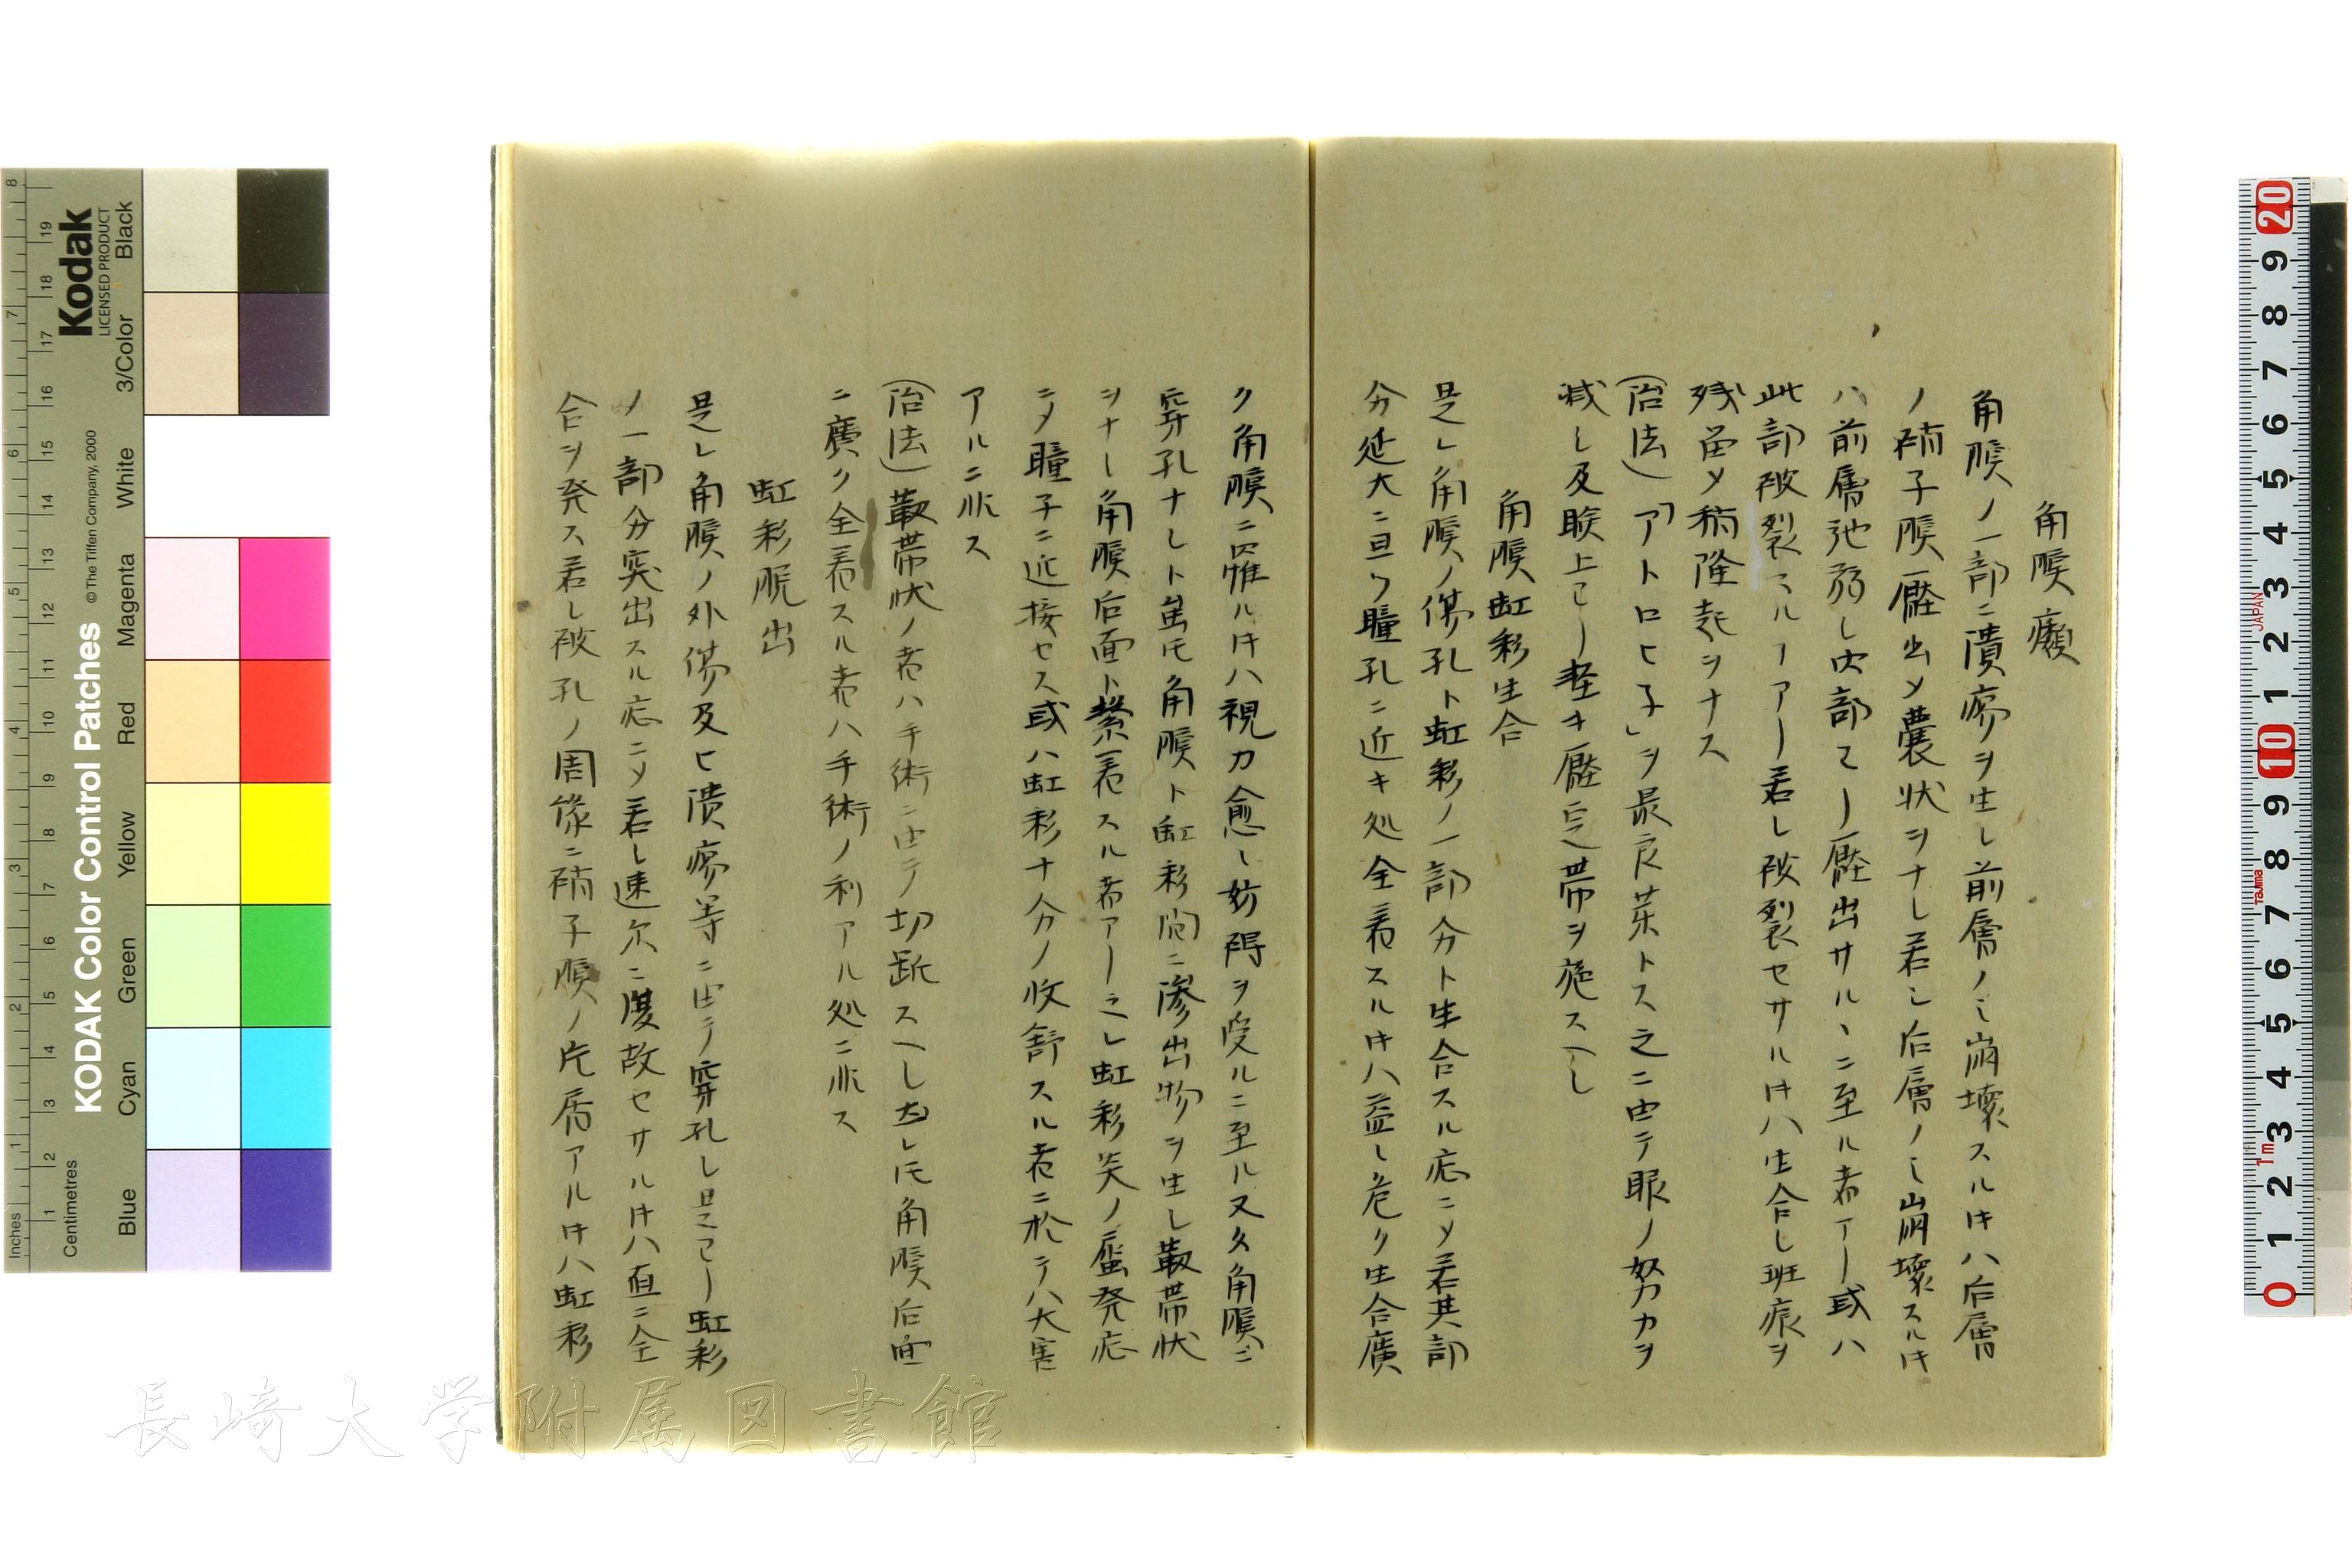 角膜癈
角膜ノ一部ニ潰瘍ヲ生シ前層ノミ崩壊スル𪜈ハ后層
ノ裲子膜壓出〆嚢状ヲナシ若シ后層ノミ崩壊スル𪜈
ハ前層弛弱シ内部ヨリ壓出サルヽニ至ル者アリ或ハ
此部破裂スルヿアリ若シ破裂セサル𪜈ハ生合シ斑痕ヲ
残畄〆稍隆起ヲナス
(治法)「アトロヒ子」ヲ最良茉トス之ニ由テ眼ノ努力ヲ
減シ及睒上ヨリ軽キ壓迠帯ヲ施スヘシ
角膜虹彩生合
是レ角膜ノ傷孔ト虹彩ノ一部分ト生合スル応ニ〆若其部
分延大ニ亘リ瞳孔ニ近キ処全着スル𪜈ハ益し危ク生合廣
ク角膜ニ罹ル𪜈ハ視力愈し妨碍ヲ受ルニ至ル又タ角膜ニ
穿孔ナシト虽𪜈角膜ト虹彩間ニ滲出物ヲ生シ靱帯状
ヲナシ角膜后面ト繋着スル者アリ之レ虹彩炎ノ屡発応
ニ〆瞳子ニ近接セス或ハ虹彩十分ノ收舒スル者ニ於テハ大害
アルニ非ス
(治法)靱帯状ノ者ハ手術ニ由テ切断スヘし然レ𪜈角膜后面
ニ廣ク全着スル者ハ手術ノ利アル処ニ非ス
虹彩脱出
是レ角膜ノ外傷及ヒ潰瘍等ニ由テ穿孔し是ヨリ虹彩
ノ一部分突出スル応ニ〆若し速尓ニ復故セサル𪜈ハ直ニ全
合ヲ発ス若し破孔ノ周縁ニ裲子膜ノ片屑アル𪜈ハ虹彩
KODAK Color Control Patches
© The Tiffen Company, 2000
Kodak
LICENSED PRODUCT
Inches
Centimetres
Blue
Cyan
Green
Yellow
Red
Magenta
White
3/Color
Black
長崎大学附属図書館
JAPAN
Tajima
1m